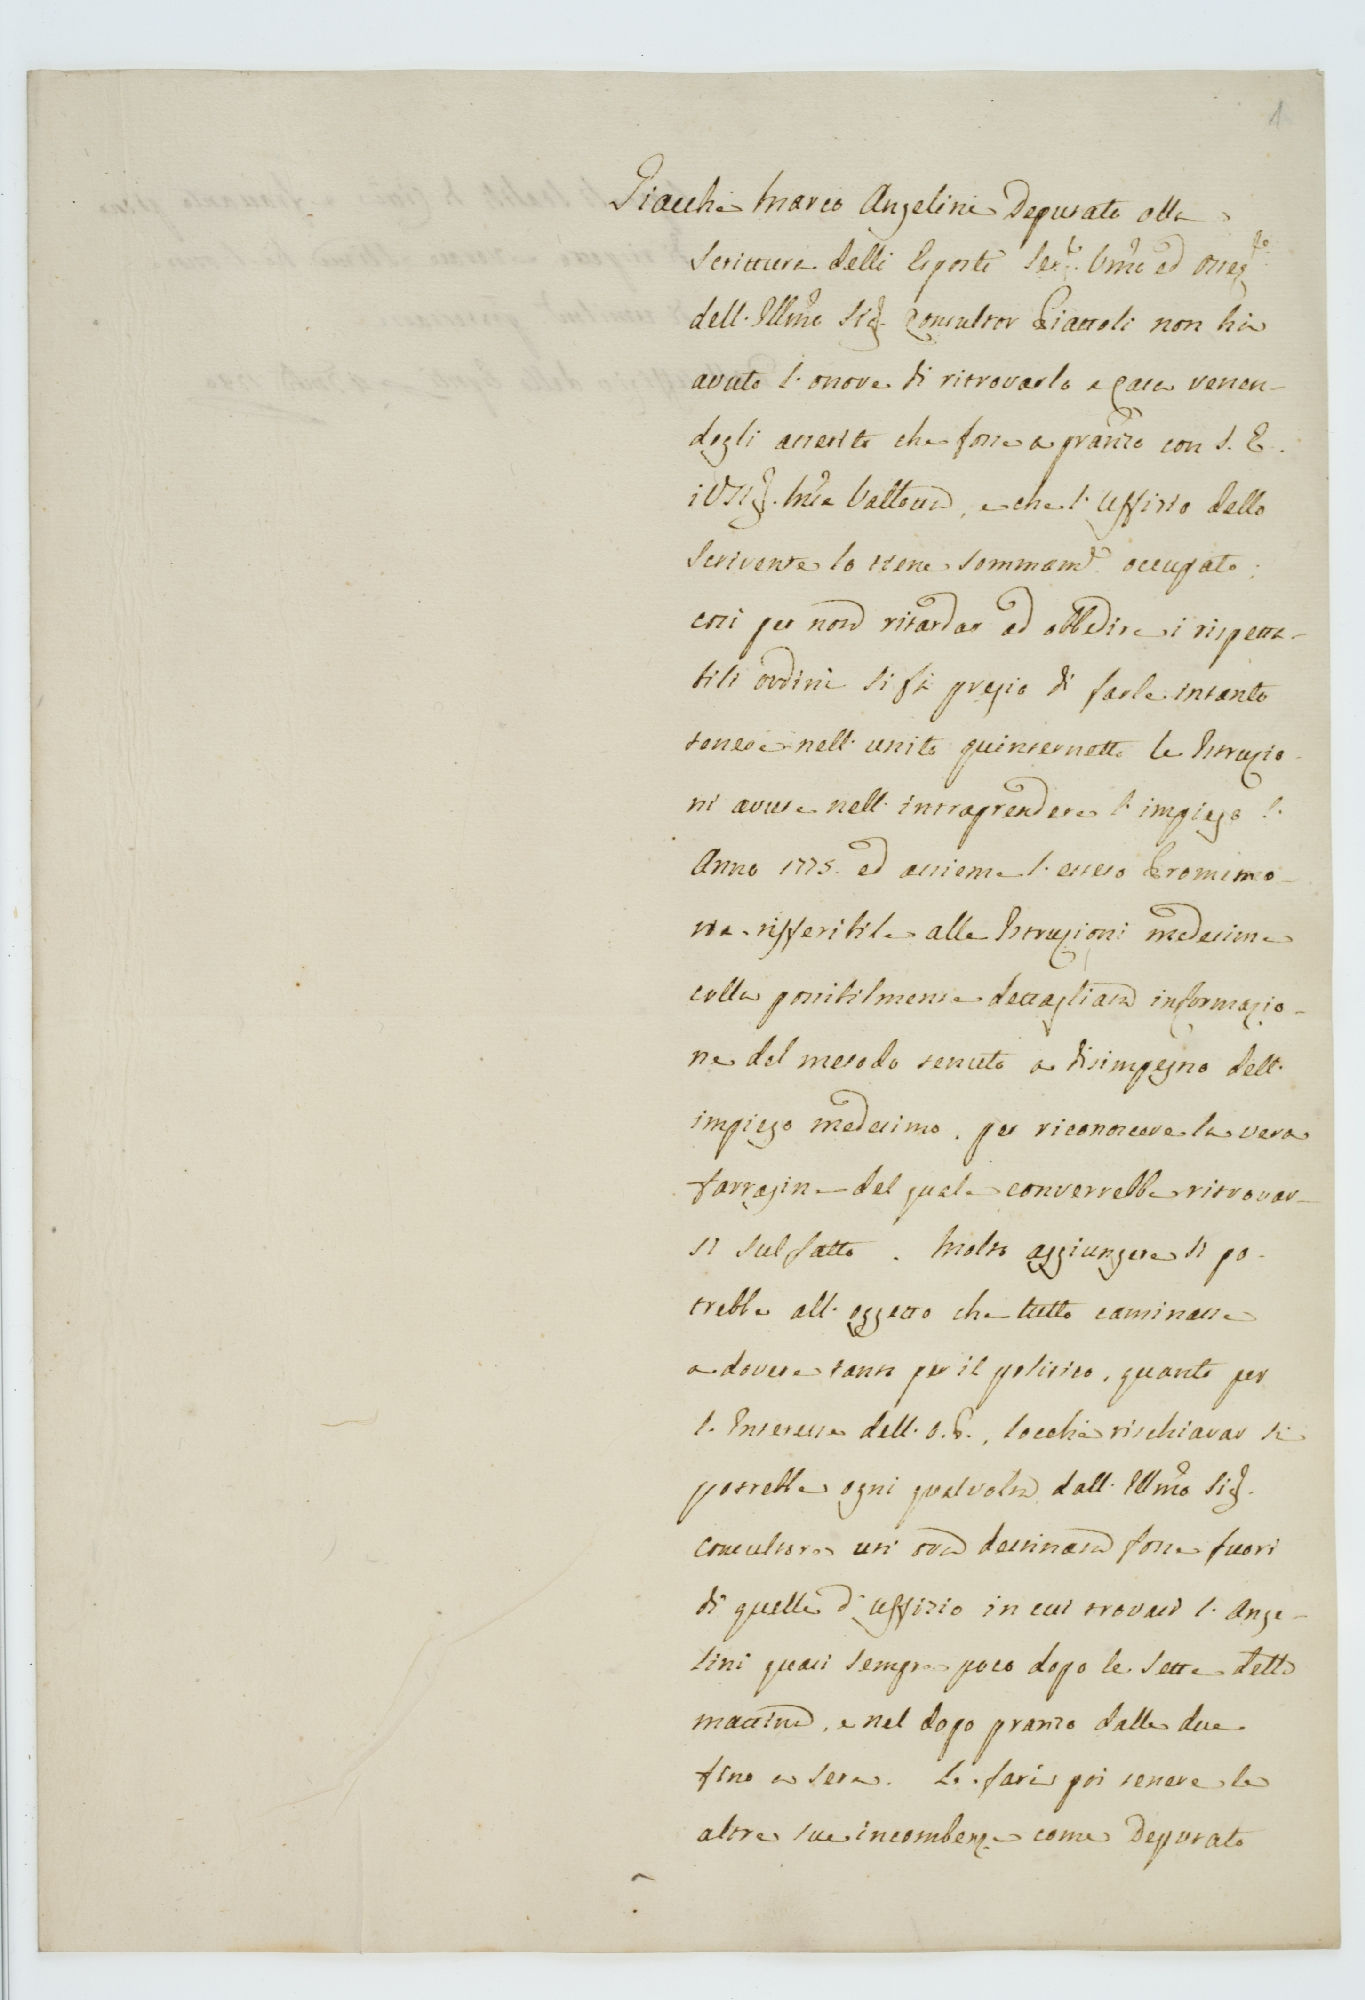 1
Giacchè Marco Angelini Deputato alla
Scrittura delli Esposti Ser.e Umo ed osseq.mo
dell' Illmo Sig. Consultor Giattoli non hà
avuto l' onore di ritrovarlo a Casa venen-
dogli asserito che fosse a pranzo con S. E.
il Sig. Mse Vallotta, e che l' Uffizio dello
Scrivente lo tiene sommamte occupato;
così per non ritardar ad obbedire i rispetta-
bili ordini si fà pregio di farle intanto
tenere nell' unito quinternetto le Istruzio-
ni avute nell' intraprendere l' impiego l'
Anno 1775. ed assieme l' esteso Promemo-
ria rifferibile alle Istruzioni medesime
colla possibilmente dettagliata informazio-
ne del metodo tenuto a disimpegno dell'
impiego medesimo, per riconoscere la vera
farragine del quale converrebbe ritrovar-
si sul fatto. Molto aggiungere si po-
trebbe all' oggetto che tutto caminasse
a dovere tanto per il politico, quanto per
l' Interesse dell' O. P., locchè rischiarar si
potrebbe ogni qualvolta dall' Illmo Sig.
Consultore un' ora destinata fosse fuori
di quelle d' Uffizio in cui trovasi l' Ange-
lini quasi sempre poco dopo le sette della
mattina, e nel dopo pranzo dalle due
fino a sera. Le farà poi tenere le
altre sue incombenze come Deputato